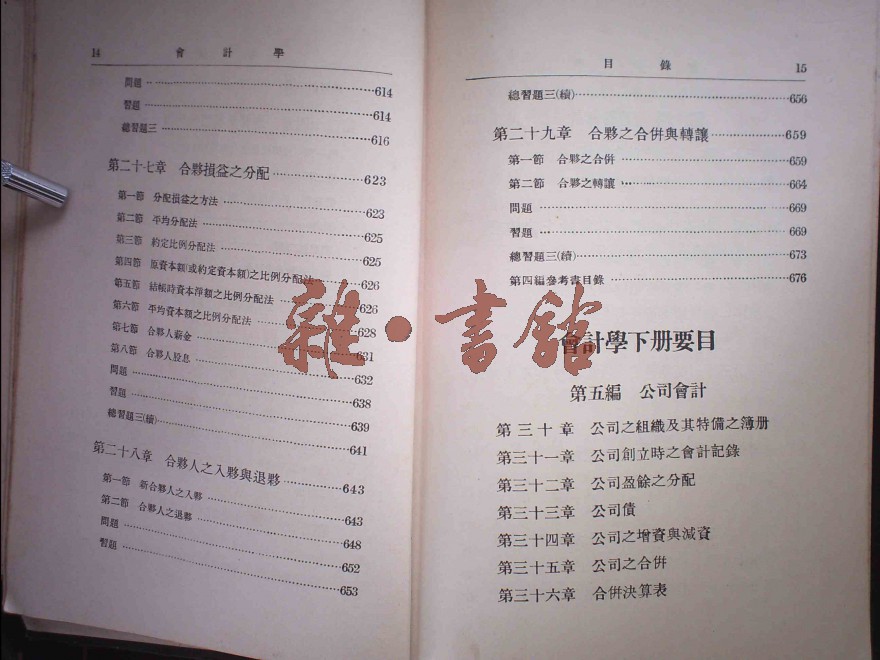 14 會計學
問題 614
習題 614
總習題三 616
第二十七章 合夥損益之分配 623
第一節 分配損益之方法 623
第二節 平均分配法 625
第三節 約定比例分配法 625
第四節 原資本額(或約定資本額)之比例分配法 626
第五節 結帳時資本淨額之比例分配法 626
第六節 平均資本額之比例分配法 628
第七節 合夥人薪金 631
第八節 合夥人股息 632
問題 638
習題 639
總習題三(續) 641
第二十八章 合夥人之入夥與退夥 643
第一節 新合夥人之入夥 643
第二節 合夥人之退夥 648
問題 652
習題 653
目錄 15
總習題三(續) 656
第二十九章 合夥之合併與轉讓 659
第一節 合夥之合併 659
第二節 合夥之轉讓 664
問題 669
習題 669
總習題三(續) 673
第四編參考書目錄 676
會計學下册要目
第五編 公司會計
第三十章 公司之組織及其特備之簿册
第三十一章 公司創立時之會計記錄
第三十二章 公司盈餘之分配
第三十三章 公司債
第三十四章 公司之增資與減資
第三十五章 公司之合併
第三十六章 合併決算表
雜·書館